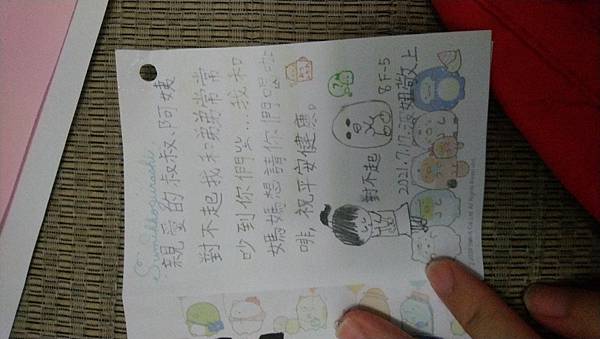 Sumikkogurashi
親愛的叔叔.阿姨
對不起我和弟弟常常
吵到你們...我和
媽媽想請你們喝咖
啡,祝平安健康。
對不起
8F-5
2021.7/17 妞敬上